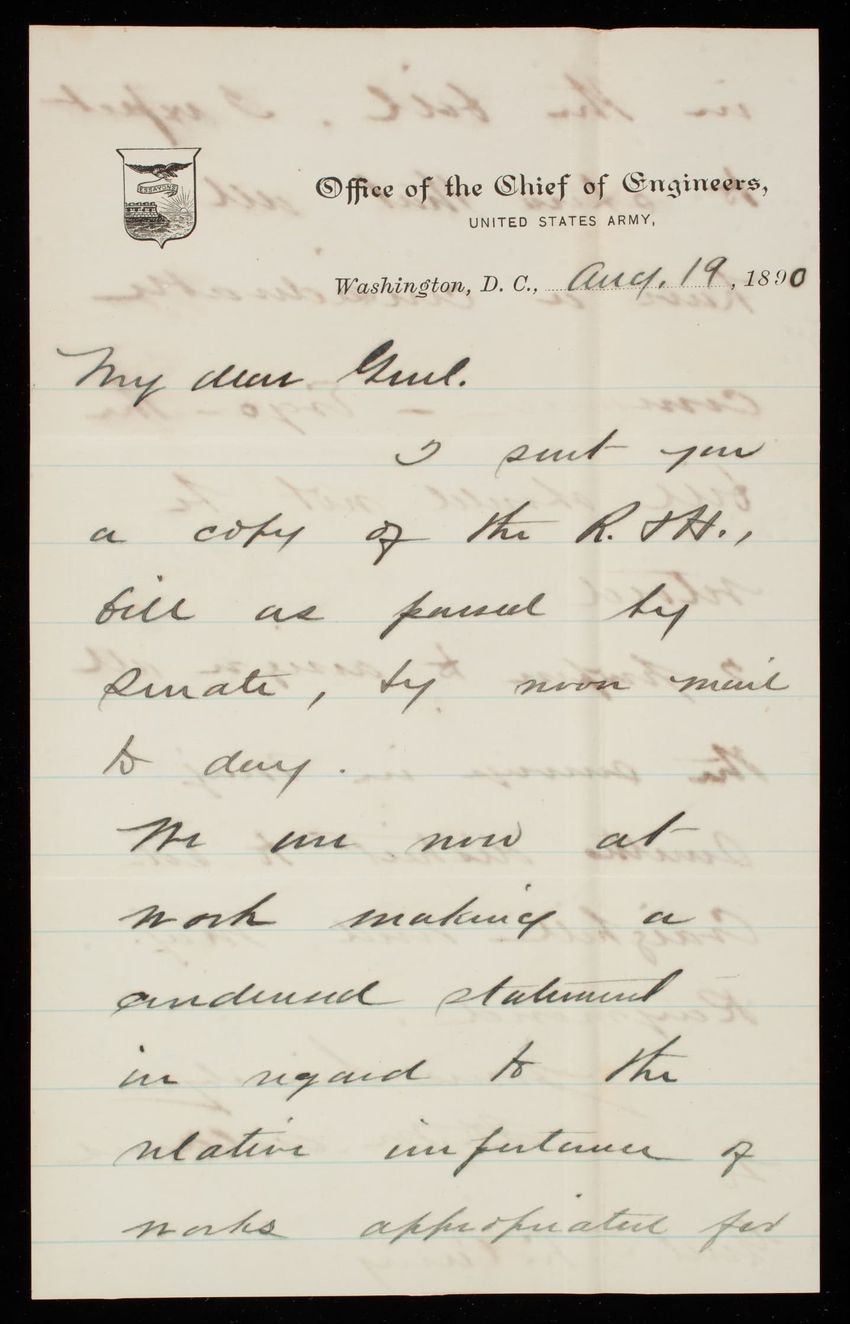 ESSAYONS
Office of the Chief of Engineers,
UNITED STATES ARMY,
Washington, D. C., Aug. 19, 1890
My dear Genl.
I sent you
a copy of the R. & H.,
bill as passed by
Senate, by noon mail
to day.
We are now at
work making a
condensed statement
in regard to the
relative importance of
works appropriated for